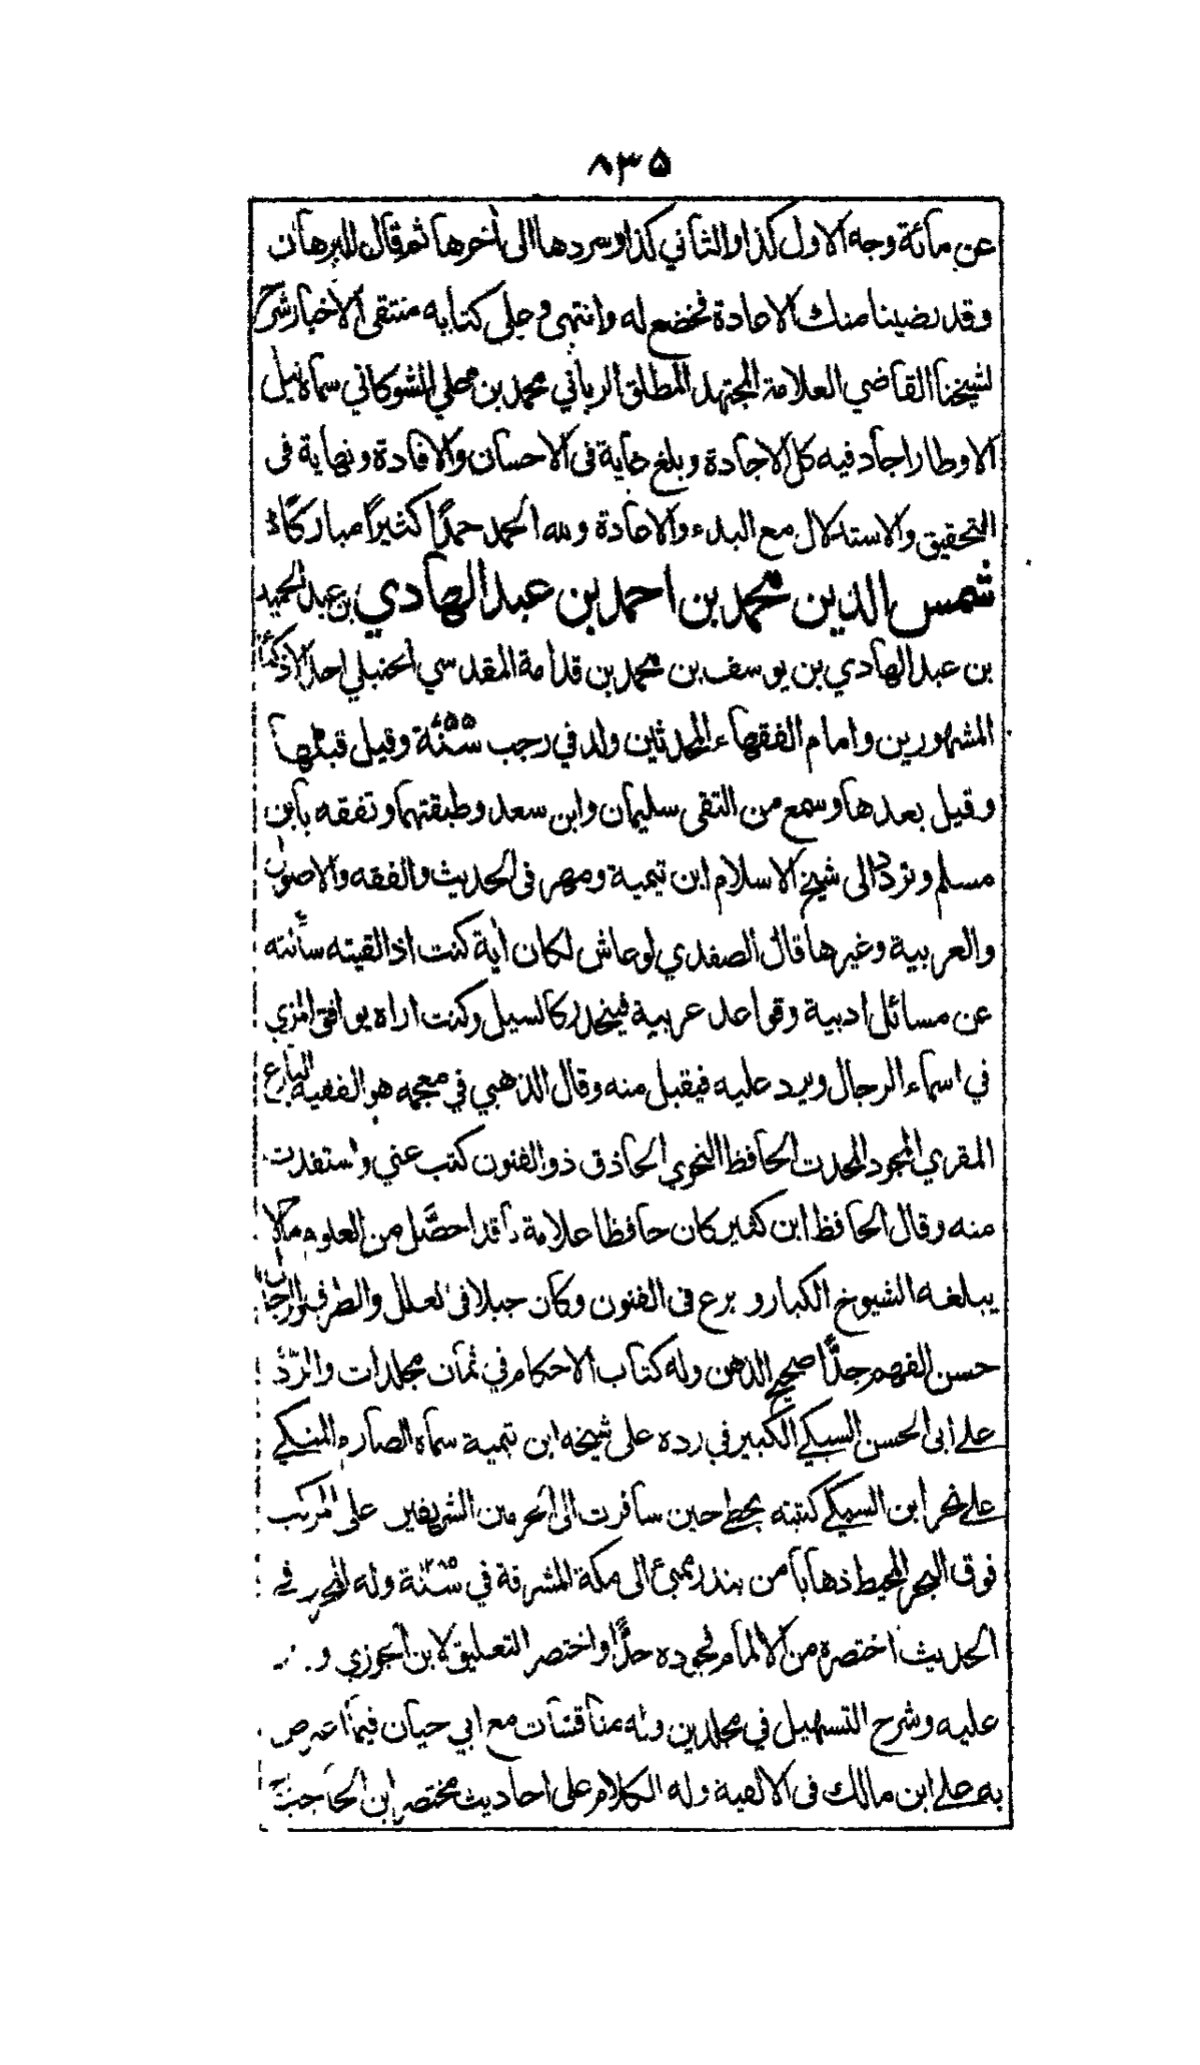 ٨٣٥
عن مائة وجه الاول كذا والثاني كذا وسردها الى أخرها ثم قال للبرهان
وقد رضينا منك الاعادة فخضع له وانتهى وعلى كتابه منتقى الأخبار شرح
لشيخنا القاضي العلامة المجتهد المطلق الرباني محمد بن علي الشوكاني سماه نيل
الاوطار اجاد فيه كل الاجادة وبلغ غاية فى الاحسان والافادة ونهاية فى
التحقيق والاستدلال مع البدء والاعادة ولله الحمد حمدًا كثيرًا مباركًا
شمس الدين محمد بن احمد بن عبد الهادي بن عبد الحميد
بن عبد الهادي بن يوسف بن محمد بن قدامة المقدسي الحنبلي احد الاذكياء
المشهورين وامام الفقهاء المحدثين ولد في رجب سنة وقيل قبلها
وقيل بعدها وسمع من التقى سليمان وابن سعد وطبقتهما وتفقه بابن
مسلم وتردد الى شيخ الاسلام ابن تيمية ومهر فى الحديث والفقه والاصول
والعربية وغيرها قال الصفدي لو عاش لكان أية كنت اذا لقيته سألته
عن مسائل ادبية وقواعد عربية فينحدر كالسيل وكنت اراه يوافق المزي
في اسماء الرجال ويرد عليه فيقبل منه وقال الذهبي في معجمه هو الفقيه البارع
المقري المجود المحدث الحافظ النحوي الحاذق ذو الفنون كتب عني واستفدت
منه وقال الحافظ ابن كثير كان حافظا علامة ناقدا حصَّل من العلوم ما لا
يبلغه الشيوخ الكبار و برع فى الفنون وكان جبلا فى العلل والطرق والرجال
حسن الفهم جدًّا صحيح الذهن وله كتاب الاحكام في ثمان مجلدات والردّ
على ابى الحسن السبكي الكبير في رده على شيخه ابن تيمية سماه الصارم المنكي
على نحر ابن السبكي كتبته بخطي حين سافرت الى الحرمين الشريفين على المركب
فوق البحر المحيط ذهابا من بندر ممبئ الى مكة المشرفة في سنة ١٢٨٥ وله المحرر في
الحديث اختصره من الالمام فجوده جدًّا واختصر التعليق لابن الجوزي و
عليه وشرح التسهيل في مجلدين وله مناقشات مع ابي حيان فيما اعترض
به على ابن مالك فى الالفية وله الكلام على احاديث مختصر ابن الحاجب